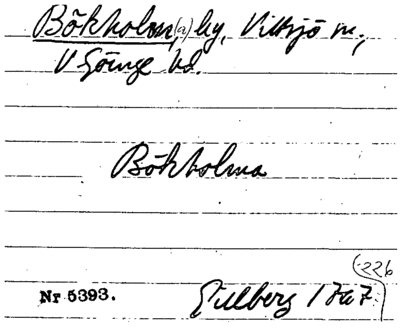 Bökholm(a) by, Vittsjö sn,
V Göinge hd.
Bökholma
(226
Nr 5393.
Gillberg 1767